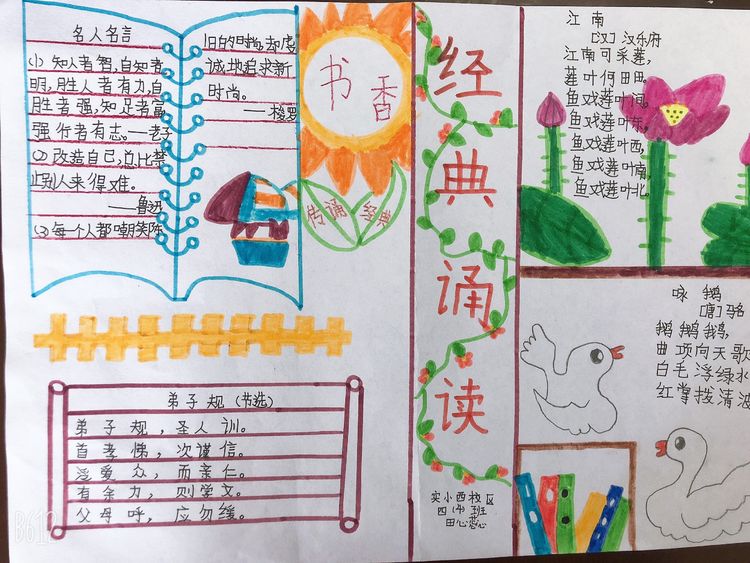 名人名言
(1) 知人者智,自知者
明,胜人者有力,自
胜者强,知足者富,
强行者有志。—老子
(2) 改造自己,总比禁
止别人来得难。
——鲁迅
(3) 每一个人都嘲笑陈
旧的时尚,却虔
诚地追求新
时尚。
——梭罗
书香
传诵 经典
弟子规(节选)
弟子规,圣人训。
首孝悌,次谨信。
泛爱众,而亲仁。
有余力,则学文。
父母呼,应勿缓。
经
典
诵
读
实小西校区
四(4)班
江南
[汉] 汉乐府
江南可采莲,
莲叶何田田。
鱼戏莲叶间。
鱼戏莲叶东,
鱼戏莲叶西,
鱼戏莲叶南,
鱼戏莲叶北。
咏鹅
[唐] 骆
鹅鹅鹅,
曲项向天歌
白毛浮绿水
红掌拨清波
B612